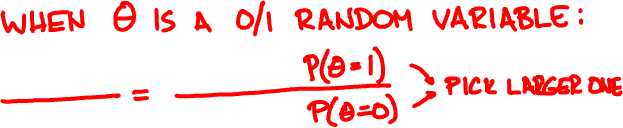 WHEN θ IS A 0/1 RANDOM VARIABLE:
P(θ=1)
_____ = _____ PICK LARGER ONE
P(θ=0)